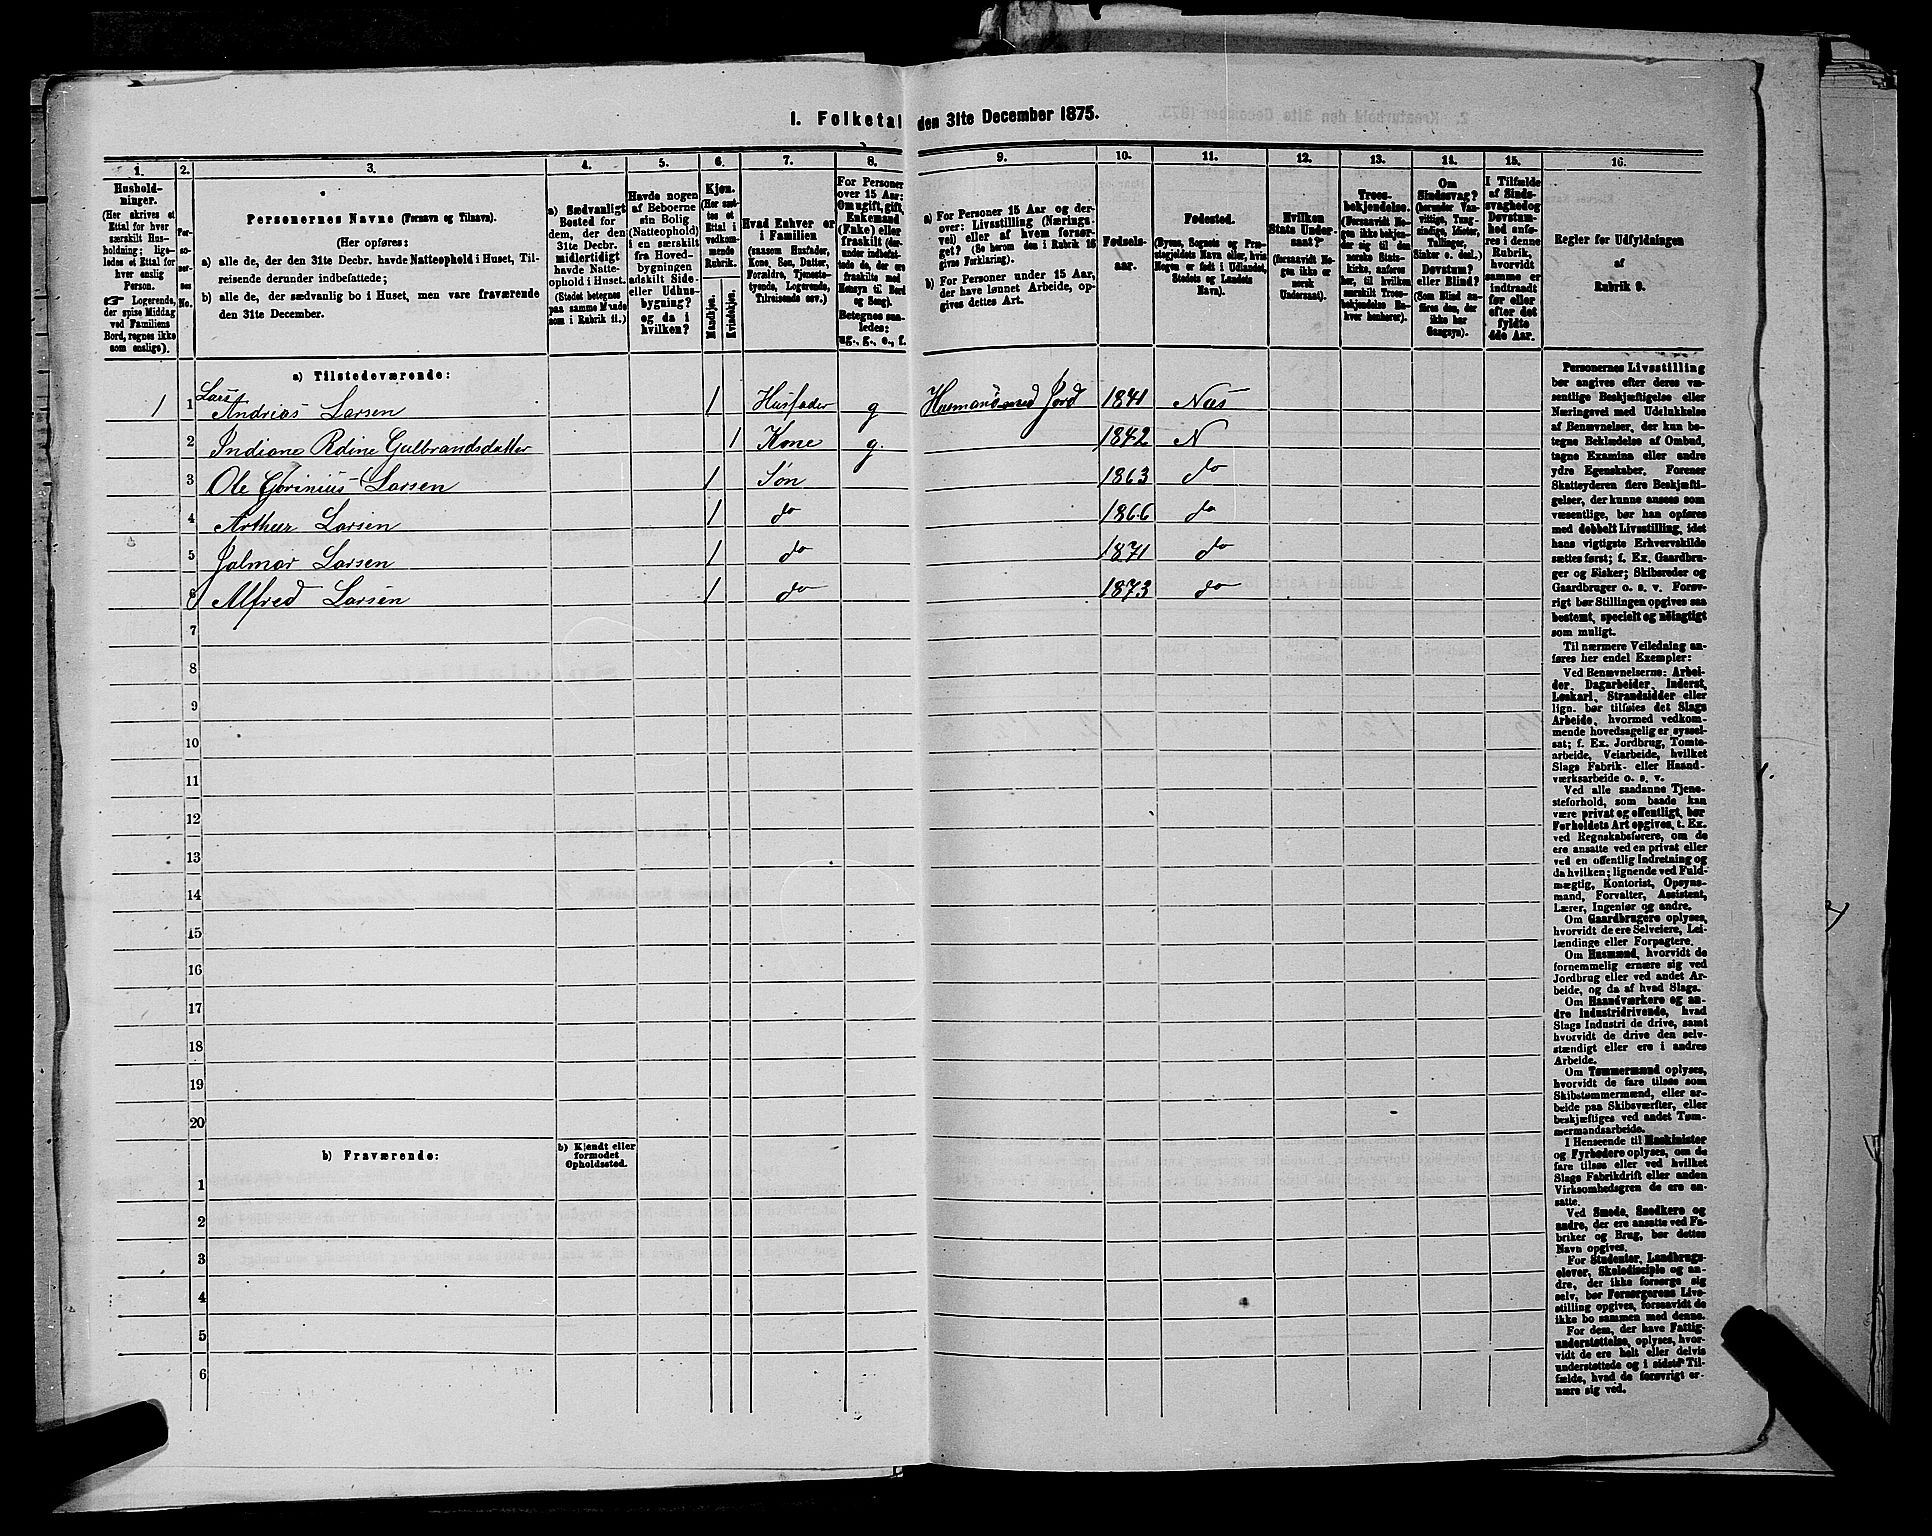 I. Folketal den 31te December 1875.
1.
Hushold-
ninger.
(Her skrives et
Ettal for hver
særskilt Hus-
holdning; lige-
ledes et Ettal for
hver enslig
Person.
☞ Logerende,
der spise Middag
ved Familiens
Bord, regnes ikke
som enslige).
2.
Per-
so-
ner-
nes
No.
3.
Personernes Navne (Fornavn og Tilnavn).
(Her opføres:
a) alle de, der den 31te Decbr. havde Natteophold i Huset, Til-
reisende derunder indbefattede;
b) alle de, der sædvanlig bo i Huset, men vare fraværende
den 31te December.
4.
a) Sædvanligt
Bosted for
dem, der den
31te Decbr.
midlertidigt
havde Natte-
ophold i Huset.
(Stedet betegnes
paa samme Maade
som i Rubrik 11.)
5.
Havde nogen
af Beboerne
sin Bolig
(Natteophold)
i en særskilt
fra Hoved-
bygningen
adskilt Side-
eller Udhus-
bygning?
og da i
hvilken?
6.
Kjøn.
(Her sæt-
tes et
Ettal i
vedkom-
mende
Rubrik.
Mandkjøn.
Kvindekjøn.
7.
Hvad Enhver er
i Familien
(saasom Husfader,
Kone, Søn, Datter,
Forældre, Tjeneste-
tyende, Logerende,
Tilreisende osv.)
8.
For Personer
over 15 Aar:
Om ugift, gift,
Enkemand
(Enke) eller
fraskilt (der-
under indbefat-
tede de, der ere
fraskilte med
Hensyn til Bord
og Seng).
Betegnes saa-
ledes:
ug., g., e., f.
9.
a) For Personer 15 Aar og der-
over: Livsstilling (Nærings-
vei) eller af hvem forsør-
get? (Se herom den i Rubrik 16
givne Forklaring).
b) For Personer under 15 Aar,
der have lønnet Arbeide, op-
gives dettes Art.
10.
Fødsels-
aar.
11.
Fødested.
(Byens, Sognets og Præ-
stegjeldets Navn eller, hvis
Nogen er født i Udlandet,
Stedets og Landets
Navn).
12.
Hvilken
Stats Under-
saat?
(forsaavidt No-
gen ikke er
norsk
Undersaat).
13.
Troes-
bekjendelse.
(Forsaavidt No-
gen ikke bekjen-
der sig til den
norske Stats-
kirke, anføres
her, til hvilken
særskilt Troes-
bekjendelse En-
hver henhører).
14.
Om
Sindssvag?
(herunder Van-
vittige, Tung-
sindige, Idioter,
Tullinger,
Sinker o. desl.)
Døvstum?
eller Blind?
(Som Blind an-
føres den, der
ikke har
Gangsyn).
15.
I Tilfælde
af Sinds-
svaghed og
Døvstum-
hed anfø-
res i denne
Rubrik,
hvorvidt
samme er
indtraadt
før eller
efter det
fyldte
4de Aar.
16.
Regler for Udfyldningen
af
Rubrik 9.
a) Tilstedeværende:
Lars
1 1 Andrias Larsen 1 Husfader g Husmand med Jord 1841 Næs
2 Indiane Rdine Gulbrandsdatter 1 Kone g. 1842 N
3 Ole Gorinius Larsen 1 Søn 1863 do
4 Arthur Larsen 1 do 1866 do
5 Jalmar Larsen 1 do 1871 do
6 Alfred Larsen 1 do 1873 do
7
8
9
10
11
12
13
14
15
16
17
18
19
20
b) Fraværende:
b) Kjendt eller
formodet
Opholdssted.
1
2
3
4
5
6
Personernes Livsstilling
bør angives efter deres væ-
sentlige Beskjæftigelse eller
Næringsvei med Udelukkelse
af Benævnelser, der kun be-
tegne Beklædelse af Ombud,
tagne Examina eller andre
ydre Egenskaber. Forener
Skatteyderen flere Beskjæfti-
gelser, der kunne ansees som
væsentlige, bør han opføres
med dobbelt Livsstilling, idet
hans vigtigste Erhvervskilde
sættes først; f. Ex. Gaardbru-
ger og Fisker; Skibsreder og
Gaardbruger o. s. v. Forøv-
rigt bør Stillingen opgives saa
bestemt, specielt og nøiagtigt
som muligt.
Til nærmere Veiledning an-
føres her endel Exempler:
Ved Benævnelserne: Arbei-
der, Dagarbeider, Inderst,
Løskarl, Strandsidder eller
lign. bør tilføies det Slags
Arbeide, hvormed vedkom-
mende hovedsagelig er syssel-
sat; f. Ex. Jordbrug, Tomte-
arbeide, Veiarbeide, hvilket
Slags Fabrik- eller Haand-
værksarbeide o. s. v.
Ved alle saadanne Tjene-
steforhold, som baade kan
være privat og offentligt, bør
Forholdets Art opgives, t. Ex.
ved Regnskabsførere, om de
ere ansatte ved en privat eller
ved en offentlig Indretning og
da hvilken; lignende ved Fuld-
mægtig, Kontorist, Opsyns-
mand, Forvalter, Assistent,
Lærer, Ingeniør og andre.
Om Gaardbrugere oplyses,
hvorvidt de ere Selveiere, Lei-
lændinge eller Forpagtere.
Om Husmænd, hvorvidt de
fornemmelig ernære sig ved
Jordbrug eller ved andet Ar-
beide, og da af hvad Slags.
Om Haandværkere og an-
dre Industridrivende, hvad
Slags Industri de drive, samt
hvorvidt de drive den selv-
stændigt eller ere i andres
Arbeide.
Om Tømmermænd oplyses,
hvorvidt de fare tilsøs som
Skibstømmermænd, eller ar-
beide paa Skibsværfter, eller
beskjæftiges ved andet Tøm-
mermandsarbeide.
I Henseende til Maskinister
og Fyrbødere oplyses, om de
fare tilsøs eller ved hvilket
Slags Fabrikdrift eller anden
Virksomhedsgren de ere an-
satte.
Ved Smede, Snedkere og
andre, der ere ansatte ved Fa-
briker og Brug, bør dettes
Navn opgives.
For Studenter, Landbrugs-
elever, Skoledisciple og an-
dre, der ikke forsørge sig
selv, bør Forsørgerens Livs-
stilling opgives, forsaavidt de
ikke bo sammen med denne.
For dem, der have Fattig-
understøttelse, oplyses, hvor-
vidt de ere helt eller delvis
understøttede og i sidste Til-
fælde, hvad de forøvrigt er-
nære sig ved.